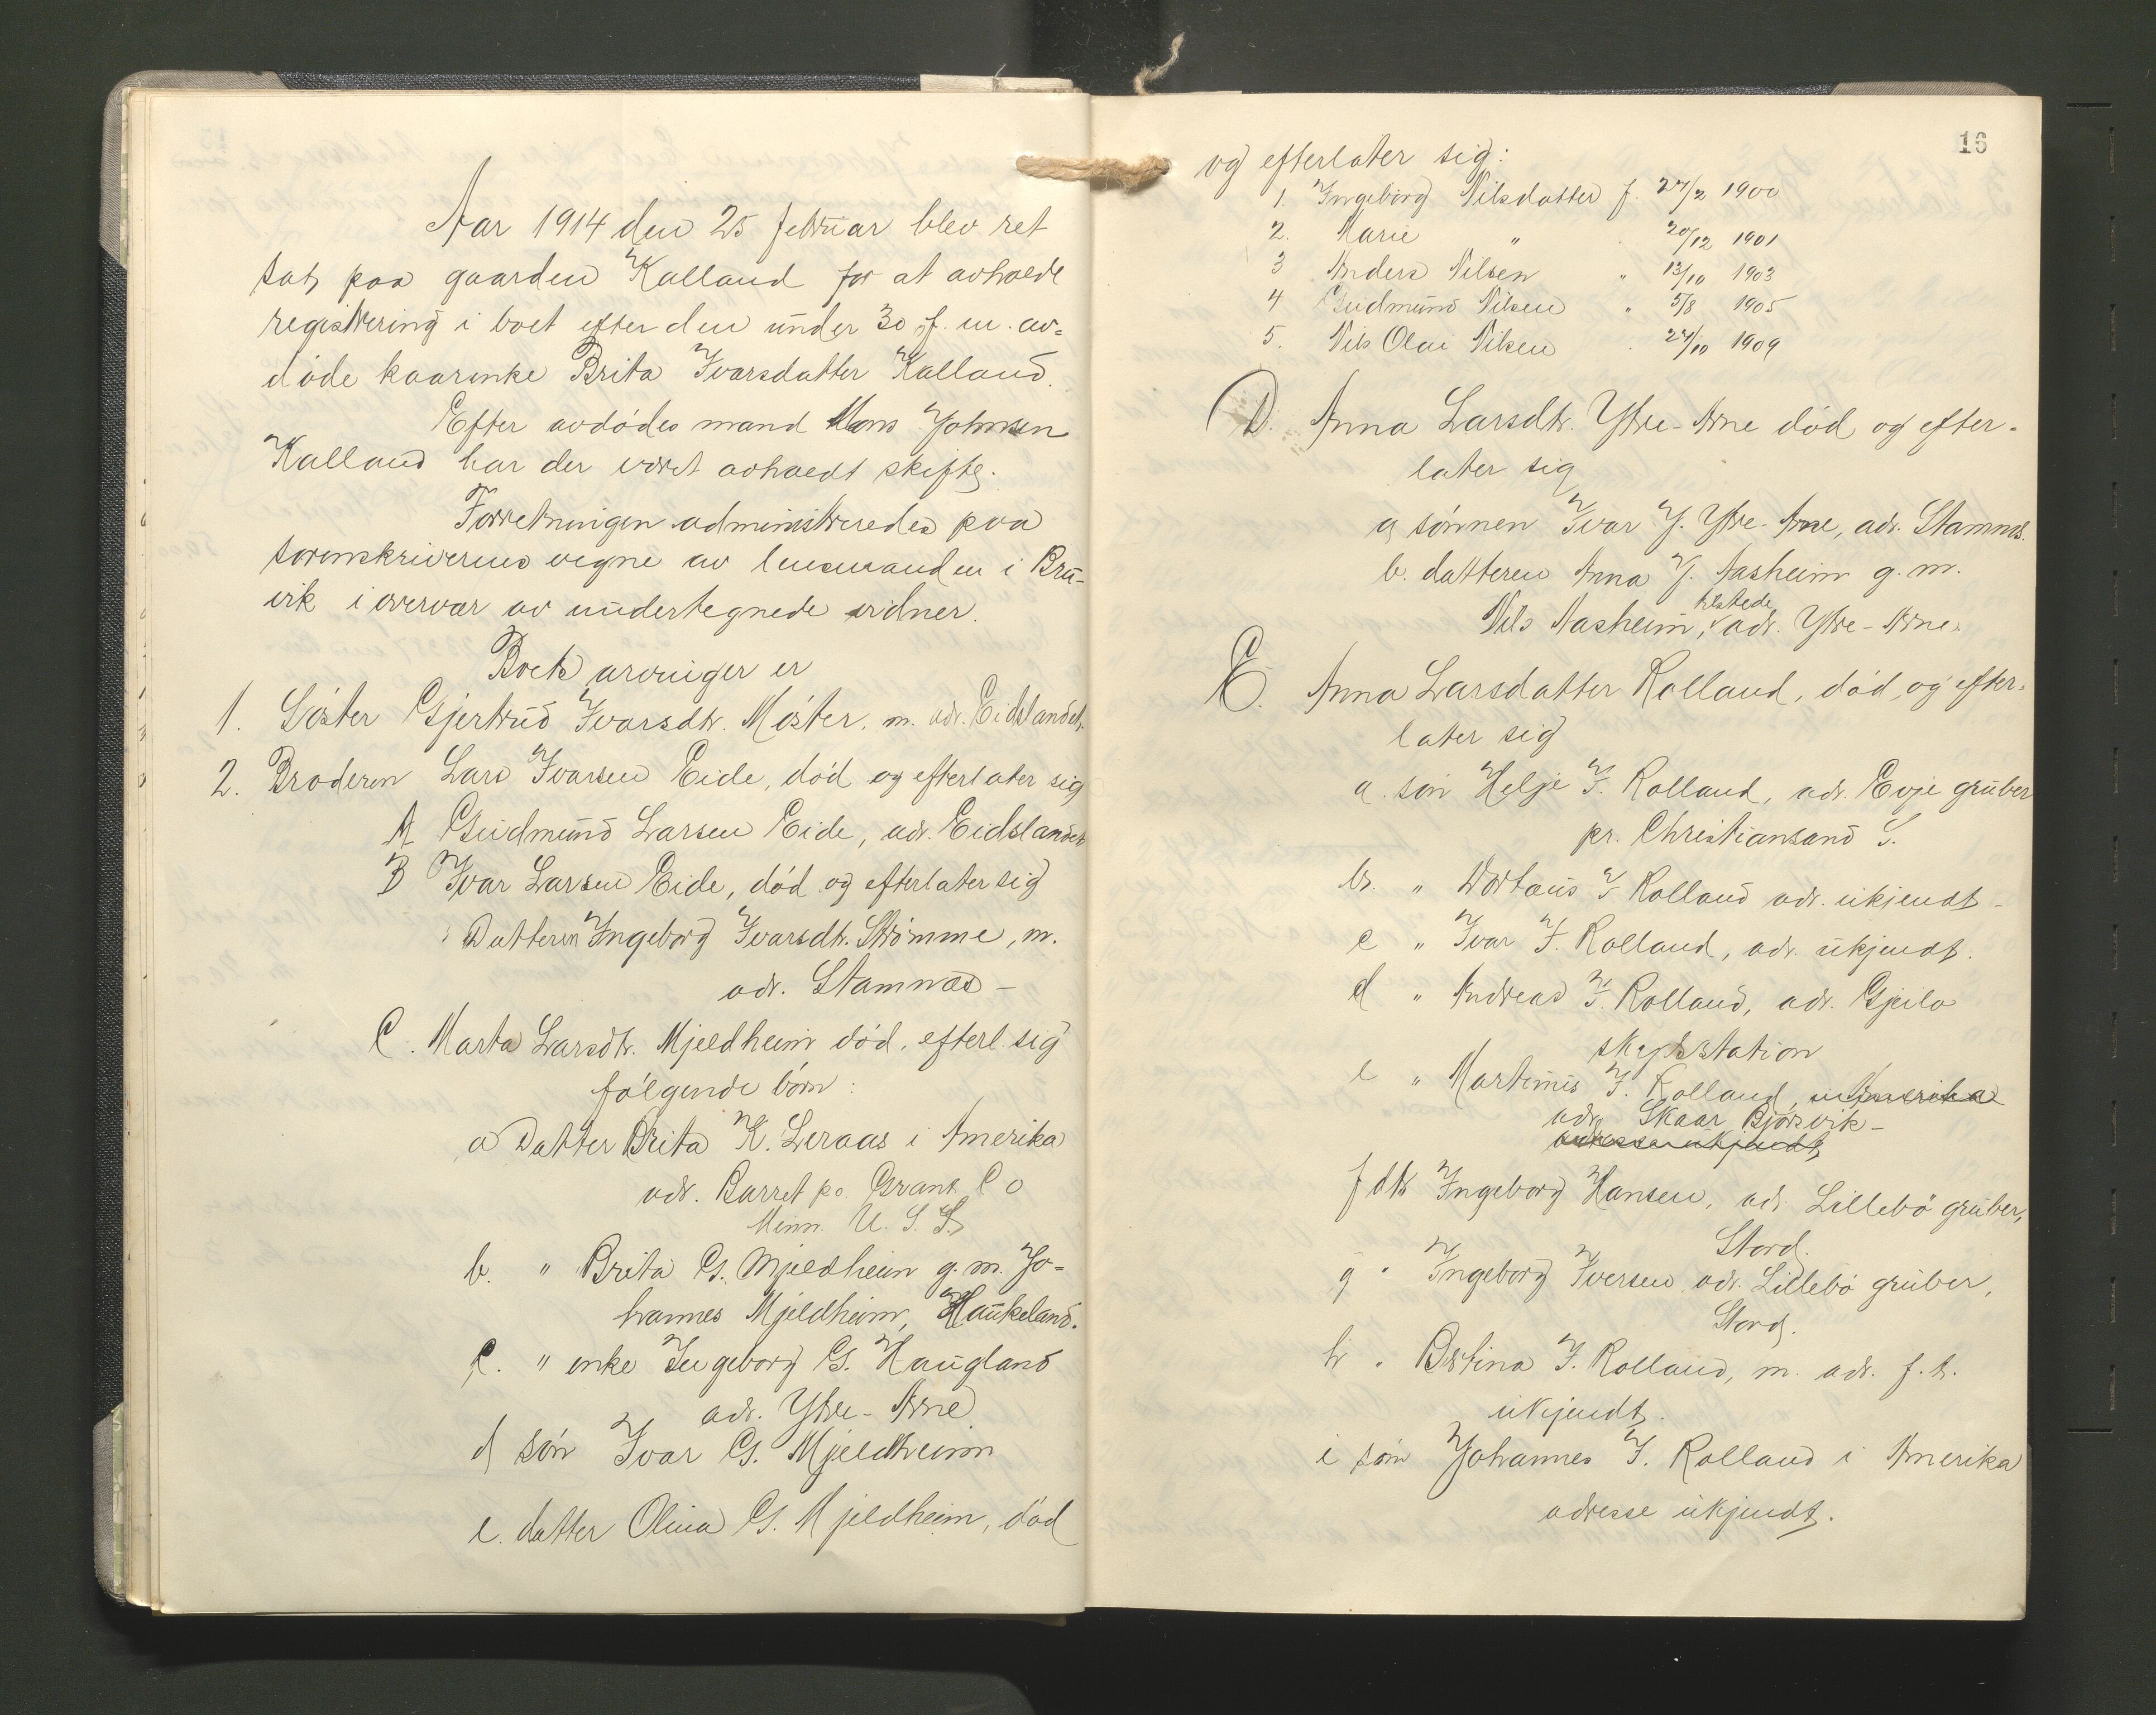 Aar 1914 den 25 februar blev ret
sat paa gaarden Kalland for at avholde
registrering i boet efter den under 30 f. m. av-
døde kaarenke Brita Ivarsdatter Kalland.
Efter avdødes mand Mons Johnsen
Kalland har der været avholdt skifte.
Forretningen administreredes paa
sorenskriverens vegne av lensmanden i Bru-
vik i overvær av undertegnede vidner.
Boets arvinger er
1. Søster Gjertrud Ivarsdtr. Møster, m. adr. Eidslandet.
2. Broderen Lars Ivarsen Eide, død og efterlater sig
A Gudmund Larsen Eide, adr. Eidslandet
B Ivar Larsen Eide, død og efterlater sig
Datteren Ingeborg Ivarsdtr. Strømme, m.
adr. Stamnæs -
C. Marta Larsdtr. Mjeldheim død, efterl. sig
følgende børn:
a Datter Brita K. Leraas i Amerika
adr. Barret po. Grant Co
Minn. U. S.
b. " Brita G. Mjeldheim g. m. Jo-
hannes Mjeldheim, Haukeland.
c. " enke Ingeborg G. Haugland
adr. Ytre-Arne
d søn Ivar G. Mjeldheim
e. datter Olina G. Mjeldheim, død
16
og efterlater sig:
1. Ingeborg Nilsdatter f. 27/2 1900
2. Marie " 20/12 1901
3 Anders Nilsen " 13/10 1903
4 Gudmund Nilsen " 5/8 1905
5. Nils Olai Nilsen 24/10 1909
D. Anna Larsdtr. Ytre-Arne død og efter-
later sig
a sønnen Ivar J. Ytre-Arne, adr. Stamnæs.
b. datteren Anna J. Aasheim g. m.
tilstede
Nils Aasheim, adr. Ytre-Arne.
E. Anna Larsdatter Rolland, død og efter-
later sig
a. søn Helje I. Rolland, adr. Evje gruber
pr. Christiansand S.
b. " I Rolland adr. ukjendt -
c " Ivar I. Rolland, adr. ukjendt.
d " Andreas I. Rolland, adr. Gjeilo
skydsstation
e " Martinus I. Rolland, i Amerika
adr. Skaar, Bjørsvik -
adresse ukjendt,
f dtr Ingeborg Hansen, adr. Lillebø gruber,
Stord.
g " Ingeborg Iversen adr. Lillebø gruber,
Stord.
h " I. Rolland, m. adr. f. t.
ukjendt.
i søn Johannes I. Rolland i Amerika
adresse ukjendt.